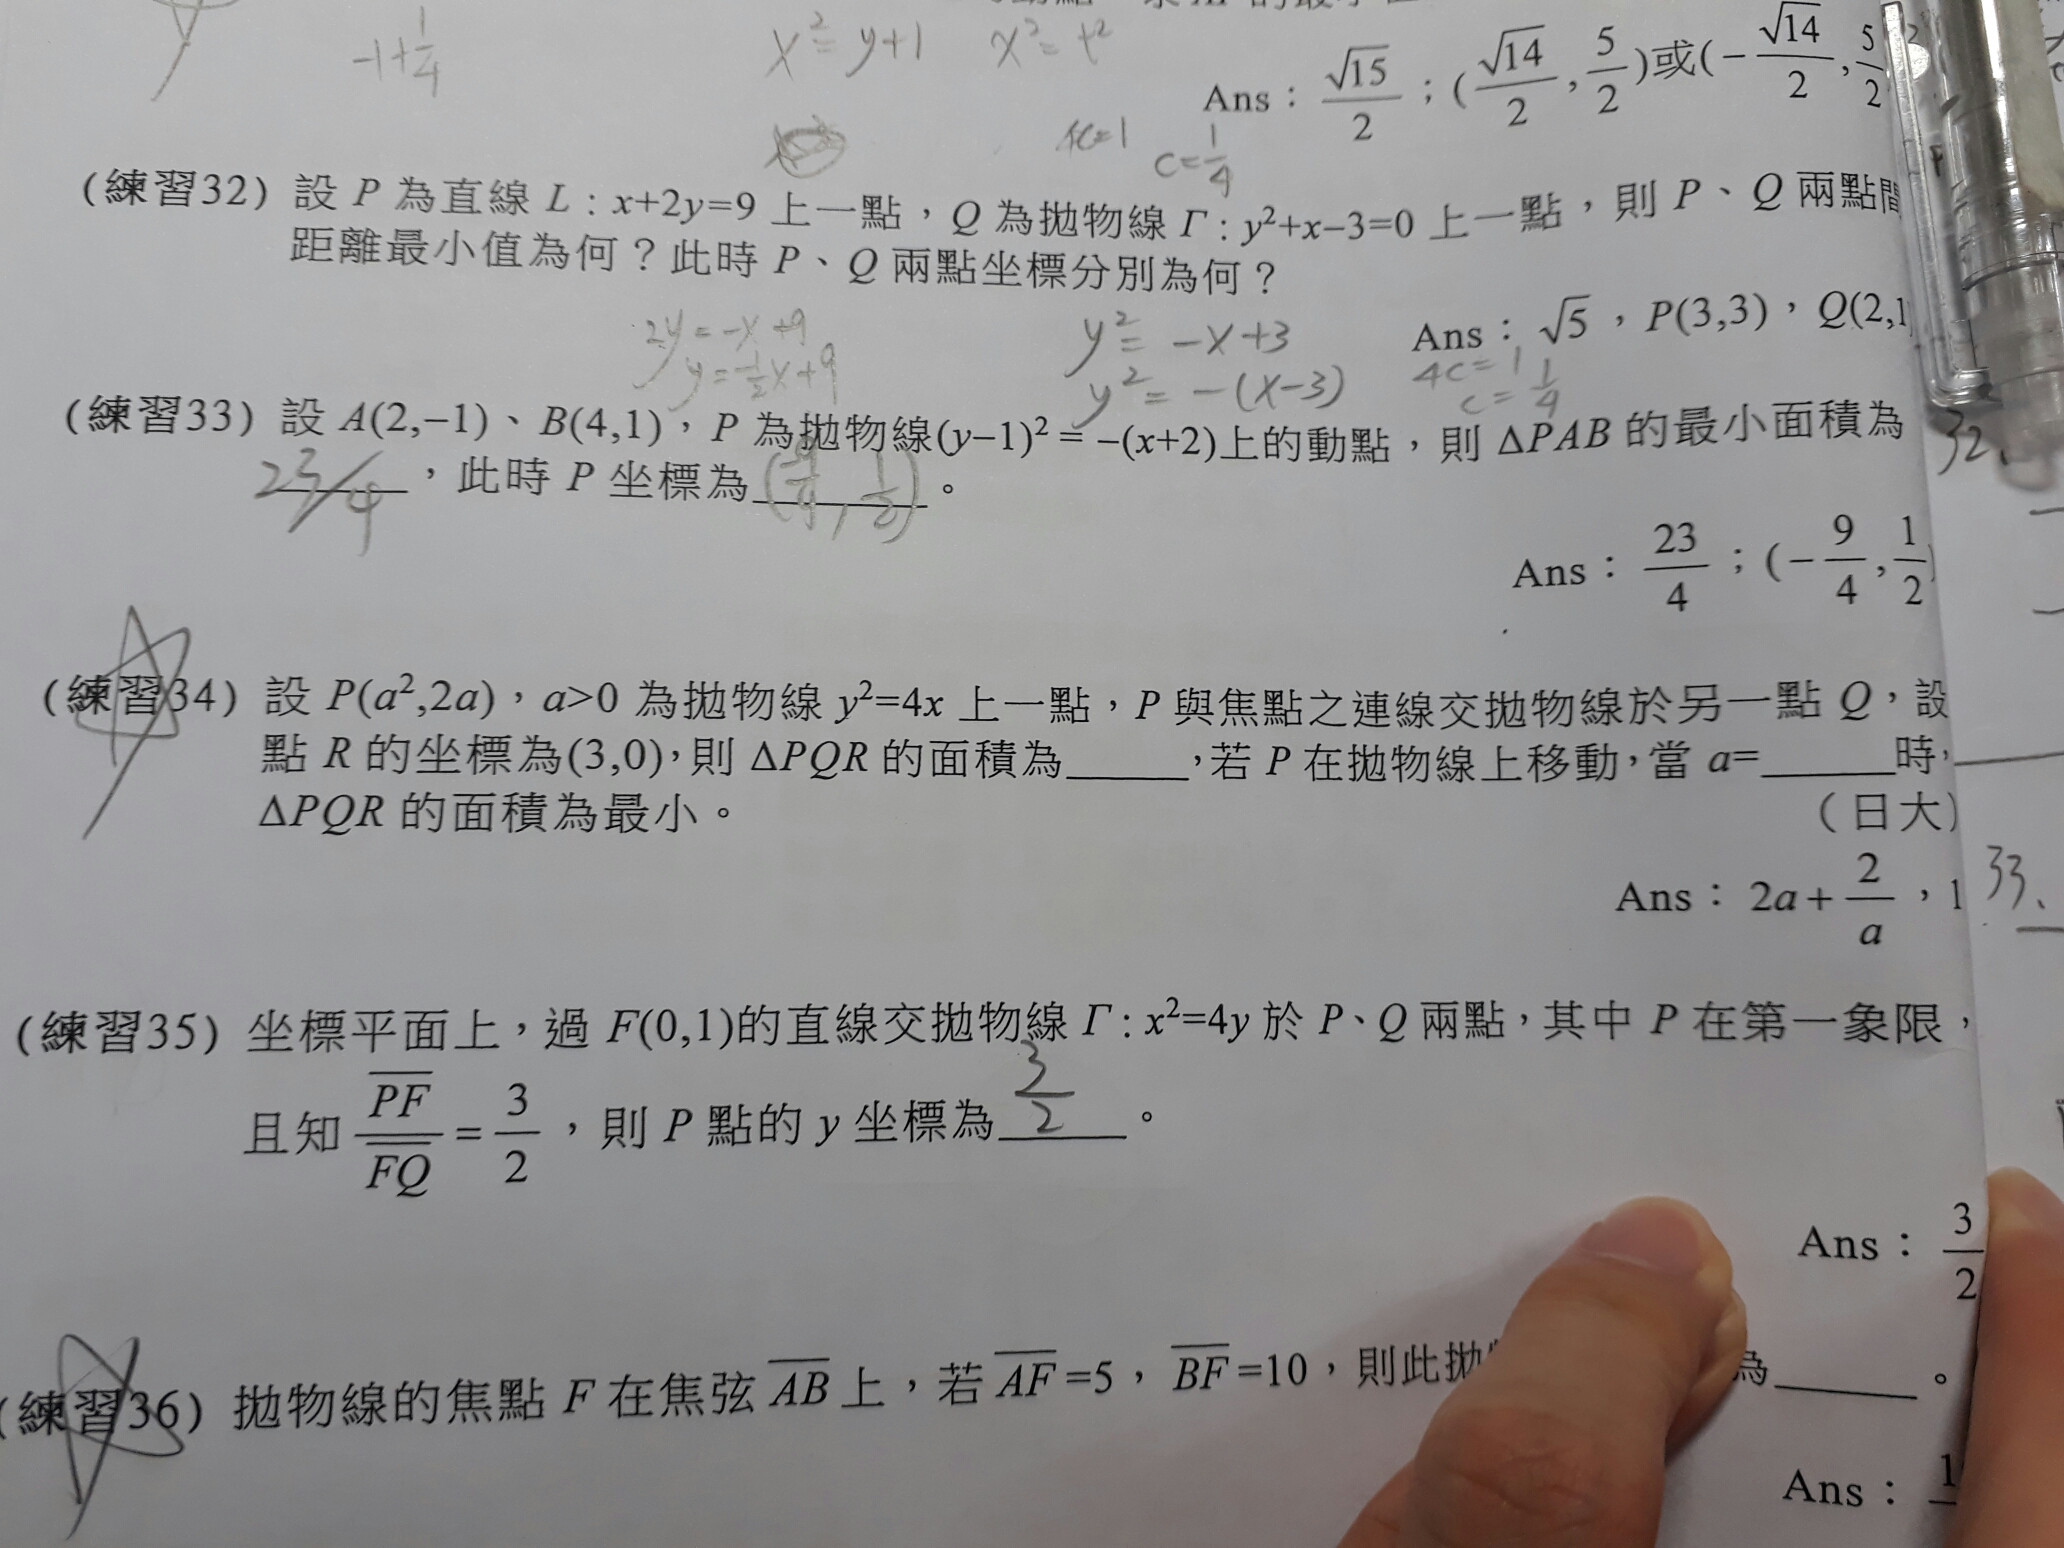 -1+1/4
x²=y+1 x²=t²
Ans：√15/2；(√14/2, 5/2)或(-√14/2, 5/2
4c=1
c=1/4
(練習32) 設 P 為直線 L：x+2y=9 上一點，Q 為拋物線 Γ：y²+x−3=0 上一點，則 P、Q 兩點間
距離最小值為何？此時 P、Q 兩點坐標分別為何？
2y=-x+9
y=-1/2x+9
y²=-x+3
y²=-(x-3)
Ans：√5，P(3,3)，Q(2,1
4c=1
c=1/4
(練習33) 設 A(2,−1)、B(4,1)，P 為拋物線(y−1)²=−(x+2)上的動點，則 ΔPAB 的最小面積為
23/4，此時 P 坐標為( , 1/2)。
32.
Ans：23/4；(−9/4, 1/2
(練習34) 設 P(a²,2a)，a>0 為拋物線 y²=4x 上一點，P 與焦點之連線交拋物線於另一點 Q，設
點 R 的坐標為(3,0)，則 ΔPQR 的面積為_____，若 P 在拋物線上移動，當 a=_____時，
ΔPQR 的面積為最小。
(日大)
Ans：2a+2/a，1
33.
(練習35) 坐標平面上，過 F(0,1)的直線交拋物線 Γ：x²=4y 於 P、Q 兩點，其中 P 在第一象限，
且知 PF/FQ=3/2，則 P 點的 y 坐標為3/2。
Ans：3/2
(練習36) 拋物線的焦點 F 在焦弦 AB 上，若 AF=5，BF=10，則此拋 為_____。
Ans：1